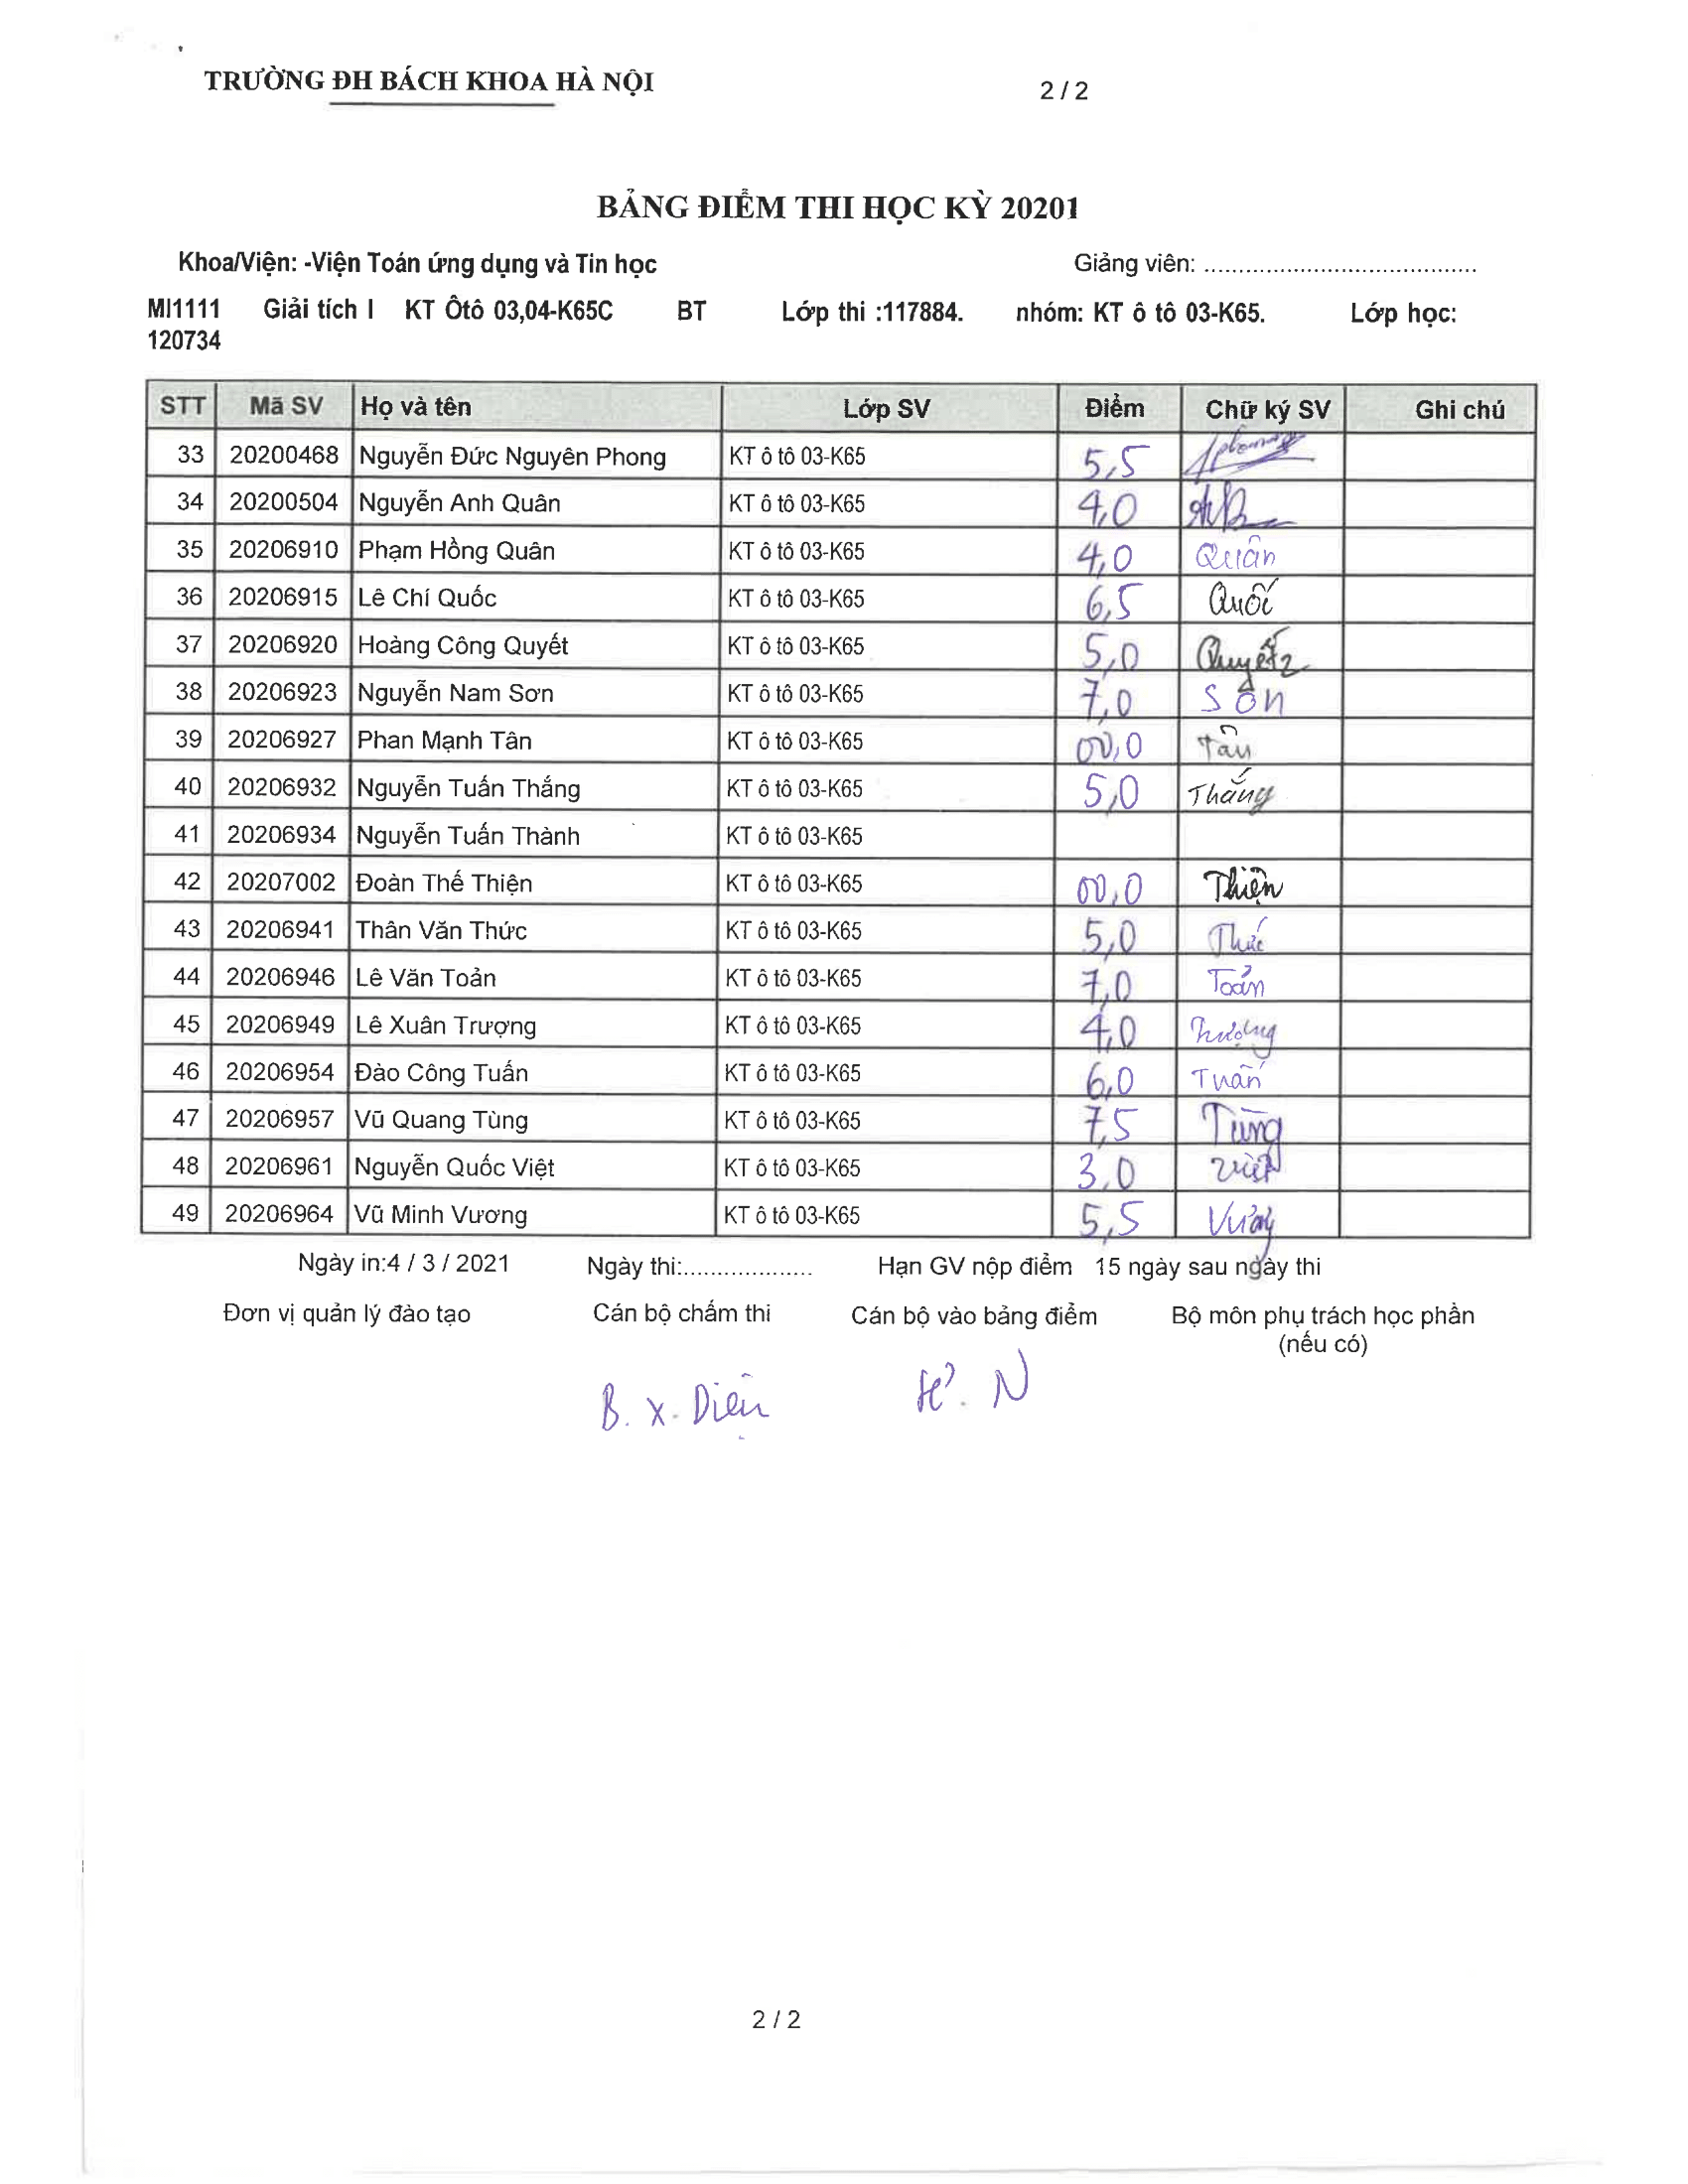 TRƯỜNG ĐH BÁCH KHOA HÀ NỘI 2 / 2
BẢNG ĐIỂM THI HỌC KỲ 20201
Khoa/Viện: -Viện Toán ứng dụng và Tin học Giảng viên: ........................................
MI1111 Giải tích I KT Ôtô 03,04-K65C BT Lớp thi :117884. nhóm: KT ô tô 03-K65. Lớp học:
120734
STT Mã SV Họ và tên Lớp SV Điểm Chữ ký SV Ghi chú
33 20200468 Nguyễn Đức Nguyên Phong KT ô tô 03-K65 5,5 Phong
34 20200504 Nguyễn Anh Quân KT ô tô 03-K65 4,0
35 20206910 Phạm Hồng Quân KT ô tô 03-K65 4,0 Quân
36 20206915 Lê Chí Quốc KT ô tô 03-K65 6,5 Quốc
37 20206920 Hoàng Công Quyết KT ô tô 03-K65 5,0 Quyết
38 20206923 Nguyễn Nam Sơn KT ô tô 03-K65 7,0 Sơn
39 20206927 Phan Mạnh Tân KT ô tô 03-K65 00,0 Tân
40 20206932 Nguyễn Tuấn Thắng KT ô tô 03-K65 5,0 Thắng
41 20206934 Nguyễn Tuấn Thành KT ô tô 03-K65
42 20207002 Đoàn Thế Thiện KT ô tô 03-K65 00,0 Thiện
43 20206941 Thân Văn Thức KT ô tô 03-K65 5,0 Thức
44 20206946 Lê Văn Toản KT ô tô 03-K65 7,0 Toản
45 20206949 Lê Xuân Trượng KT ô tô 03-K65 4,0 Trượng
46 20206954 Đào Công Tuấn KT ô tô 03-K65 6,0 Tuấn
47 20206957 Vũ Quang Tùng KT ô tô 03-K65 7,5 Tùng
48 20206961 Nguyễn Quốc Việt KT ô tô 03-K65 3,0 Việt
49 20206964 Vũ Minh Vương KT ô tô 03-K65 5,5 Vương
Ngày in:4 / 3 / 2021 Ngày thi:................... Hạn GV nộp điểm 15 ngày sau ngày thi
Đơn vị quản lý đào tạo Cán bộ chấm thi Cán bộ vào bảng điểm Bộ môn phụ trách học phần
(nếu có)
B. X. Diện
2 / 2